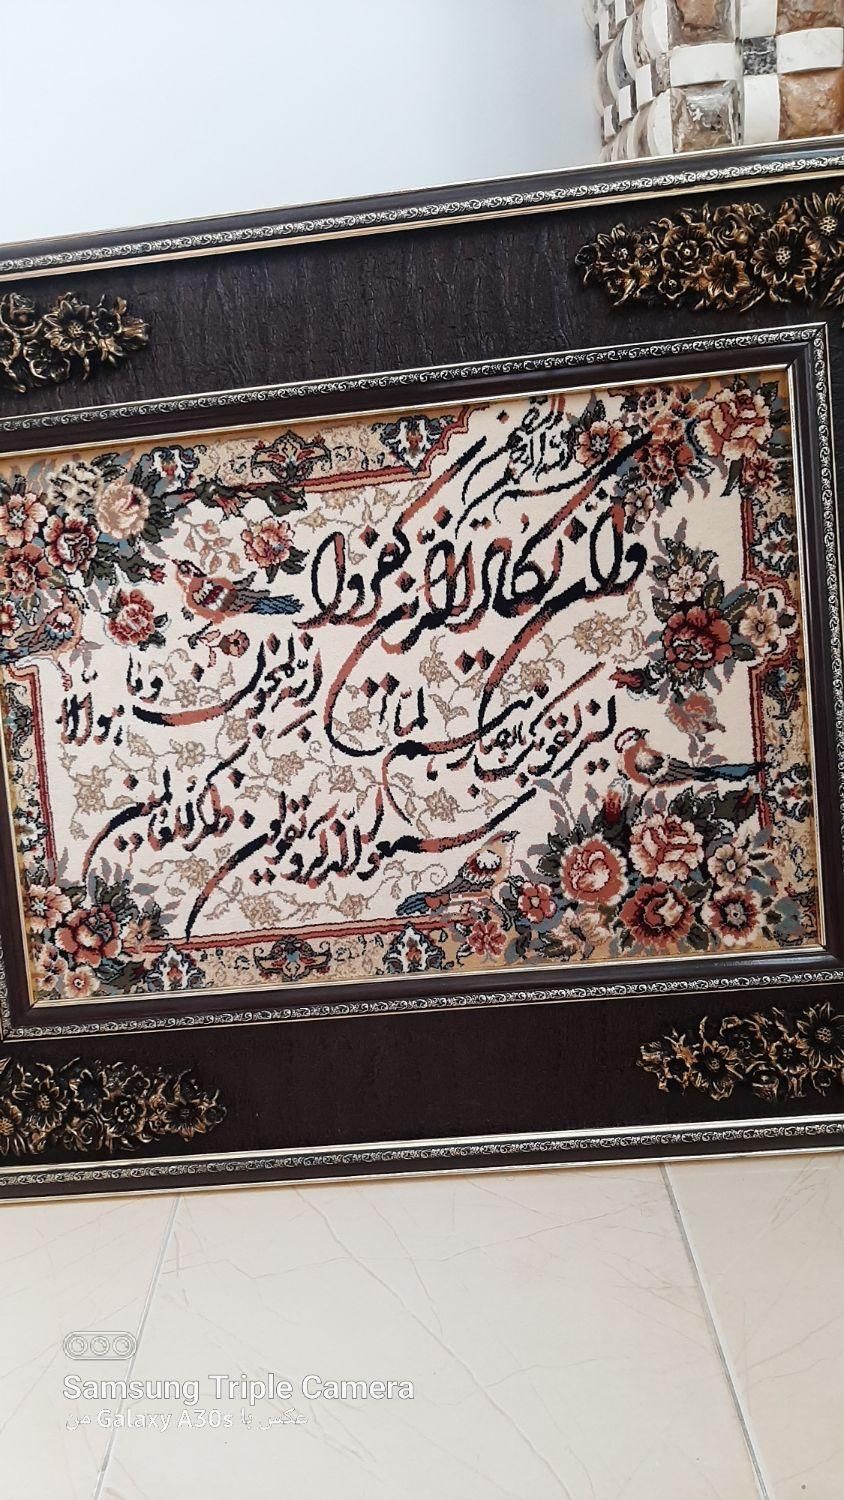 بسم الله الرحمن الرحیم
وان یکاد الذین کفروا
لیزلقونک بابصارهم لما
سمعوا الذکر و یقولون
انه لمجنون و ما هو الا
ذکر للعالمین
Samsung Triple Camera
عکس با Galaxy A30s من